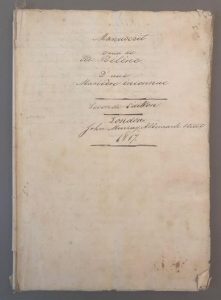 Manuscrit
venu de
Ste Helène
D'une
Manière inconnue
Seconde Edition
London
John Murray, Albemarle Street
1817